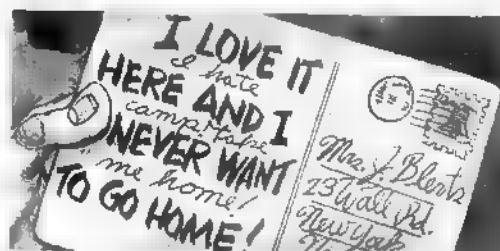 I LOVE IT
I hate
HERE AND I
camp + take
NEVER WANT
me home!
TO GO HOME!
Mrs. J. Blerts
23 Wall Rd.
New York